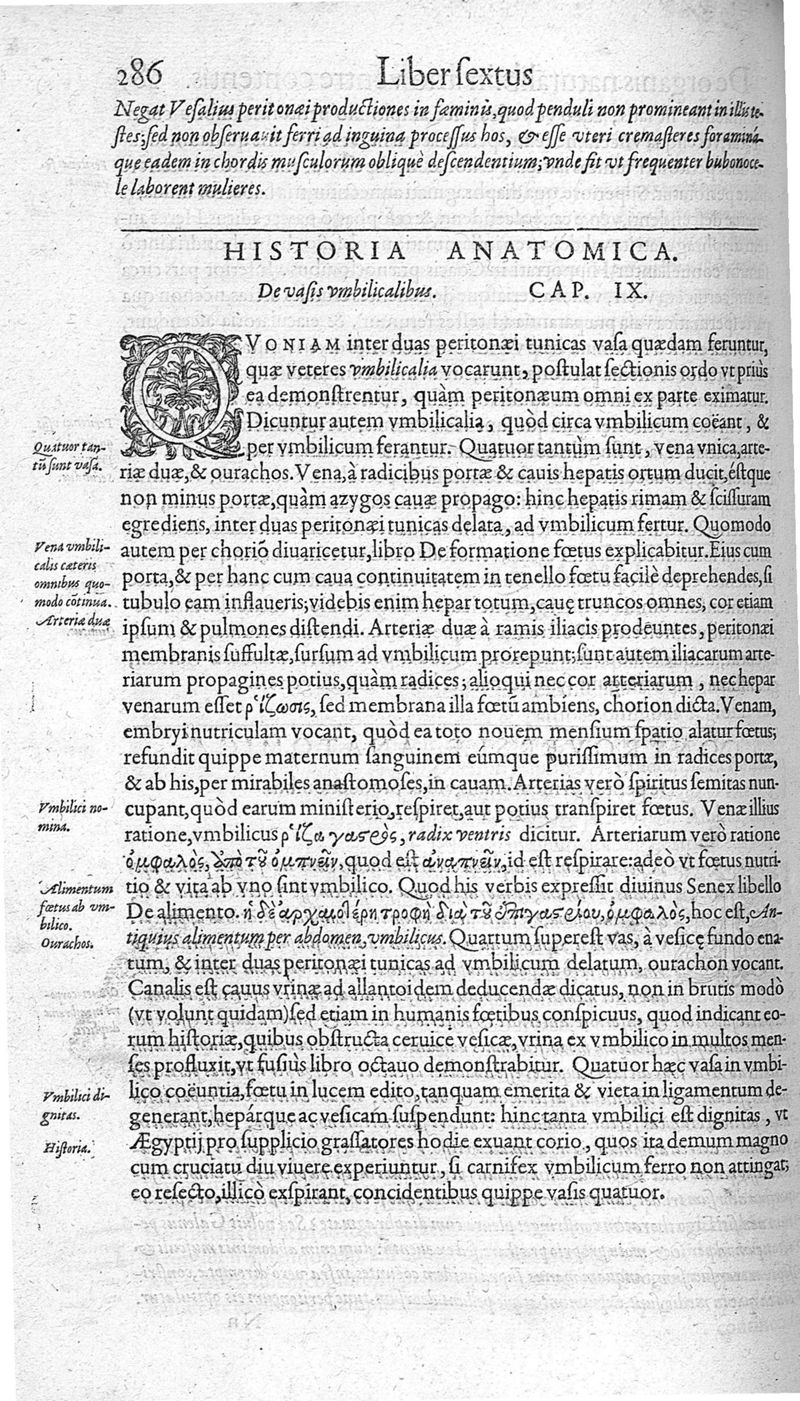 286 Liber ſextus
Negat Veſalius peritonæi productiones in fœminis, quod penduli non promineant in illis te-
ſtes; ſed non obſeruauit ferri ad inguina proceſſus hos, & eſſe vteri cremaſteres foraminá-
que eadem in chordis muſculorum obliquè deſcendentium; vnde fit vt frequenter bubonoce-
le laborent mulieres.
HISTORIA ANATOMICA.
De vaſis vmbilicalibus. CAP. IX.
QVONIAM inter duas peritonæi tunicas vaſa quædam feruntur,
quæ veteres vmbilicalia vocarunt, poſtulat ſectionis ordo vt priùs
ea demonſtrentur, quàm peritonæum omni ex parte eximatur.
Dicuntur autem vmbilicalia, quòd circa vmbilicum coëant, &
per vmbilicum ferantur. Quatuor tantùm ſunt, vena vnica, arte-
Quatuor tan-
tũ ſunt vaſa.
riæ duæ, & ourachos. Vena, à radicibus portæ & cauis hepatis ortum ducit, éſtque
non minus portæ, quàm azygos cauæ propago: hinc hepatis rimam & ſciſſuram
egrediens, inter duas peritonæi tunicas delata, ad vmbilicum fertur. Quomodo
autem per choriõ diuaricetur, libro De formatione fœtus explicabitur. Eius cum
porta, & per hanc cum caua continuitatem in tenello fœtu facilè deprehendes, ſi
tubulo eam inflaueris; videbis enim hepar totum, cauę truncos omnes, cor etiam
Vena vmbili-
calis cæteris
omnibus quo-
modo cõtinua.
ipſum & pulmones diſtendi. Arteriæ duæ à ramis iliacis prodeuntes, peritonæi
Arteriæ duæ
membranis ſuffultæ, ſurſum ad vmbilicum prorepunt; ſunt autem iliacarum arte-
riarum propagines potius, quàm radices; alioqui nec cor arteriarum, nec hepar
venarum eſſet ῥίζωσις, ſed membrana illa fœtũ ambiens, chorion dicta. Venam,
embryi nutriculam vocant, quòd ea toto nouem menſium ſpatio alatur fœtus;
refundit quippe maternum ſanguinem eúmque puriſſimum in radices portæ,
& ab his, per mirabiles anaſtomoſes, in cauam. Arterias verò ſpiritus ſemitas nun-
cupant, quòd earum miniſterio, reſpiret, aut potius tranſpiret fœtus. Venæ illius
Vmbilici no-
mina.
ratione, vmbilicus ῥίζα γαστρὸς, radix ventris dicitur. Arteriarum verò ratione
ὀμφαλὸς, ἀπὸ τοῦ ὀμπνεῖν, quod eſt ἀναπνεῖν, id eſt reſpirare: adeò vt fœtus nutri-
tio & vita ab vno ſint vmbilico. Quod his verbis expreſſit diuinus Senex libello
De alimento. ἡ δὲ ἀρχαιοτέρη τροφὴ διὰ τοῦ ἐπιγαστρίου, ὀμφαλὸς, hoc eſt, An-
tiquius alimentum per abdomen, vmbilicus. Quartum ſupereſt vas, à veſicę fundo ena-
Alimentum
fœtus ab vm-
bilico.
Ourachos.
tum, & inter duas peritonæi tunicas ad vmbilicum delatum, ourachon vocant.
Canalis eſt cauus vrinæ ad allantoidem deducendæ dicatus, non in brutis modò
(vt volunt quidam) ſed etiam in humanis fœtibus conſpicuus, quod indicant eo-
rum hiſtoriæ, quibus obſtructa ceruice veſicæ, vrina ex vmbilico in multos men-
ſes profluxit, vt fuſiùs libro octauo demonſtrabitur. Quatuor hæc vaſa in vmbi-
lico coëuntia, fœtu in lucem edito, tanquam emerita & vieta in ligamentum de-
Vmbilici di-
gnitas.
generant, hepárque ac veſicam ſuſpendunt: hinc tanta vmbilici eſt dignitas, vt
Ægyptij pro ſupplicio graſſatores hodie exuant corio, quos ita demum magno
Hiſtoria.
cum cruciatu diu viuere experiuntur, ſi carnifex vmbilicum ferro non attingat;
eo reſecto, illicò exſpirant, concidentibus quippe vaſis quatuor.